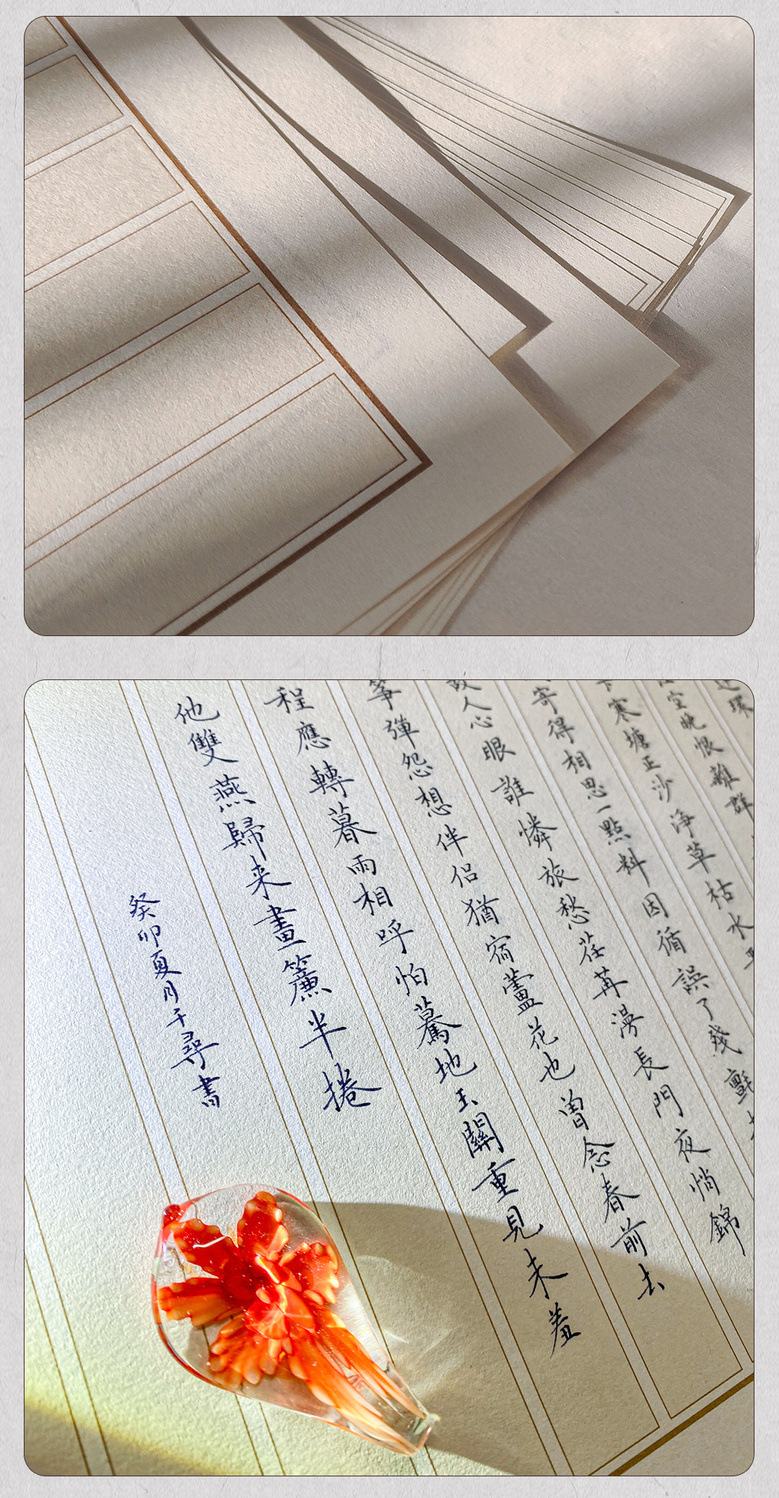 環
空晚恨離群
寒塘正沙淨草枯水
寄得相思一點料因循誤了殘氈
故人心眼誰憐旅愁荏苒漫長門夜悄錦
箏彈怨想伴侶猶宿蘆花也曾念春前去
程應轉暮雨相呼怕驀地玉關重見未羞
他雙燕歸来畫簾半捲
癸卯夏月千尋書